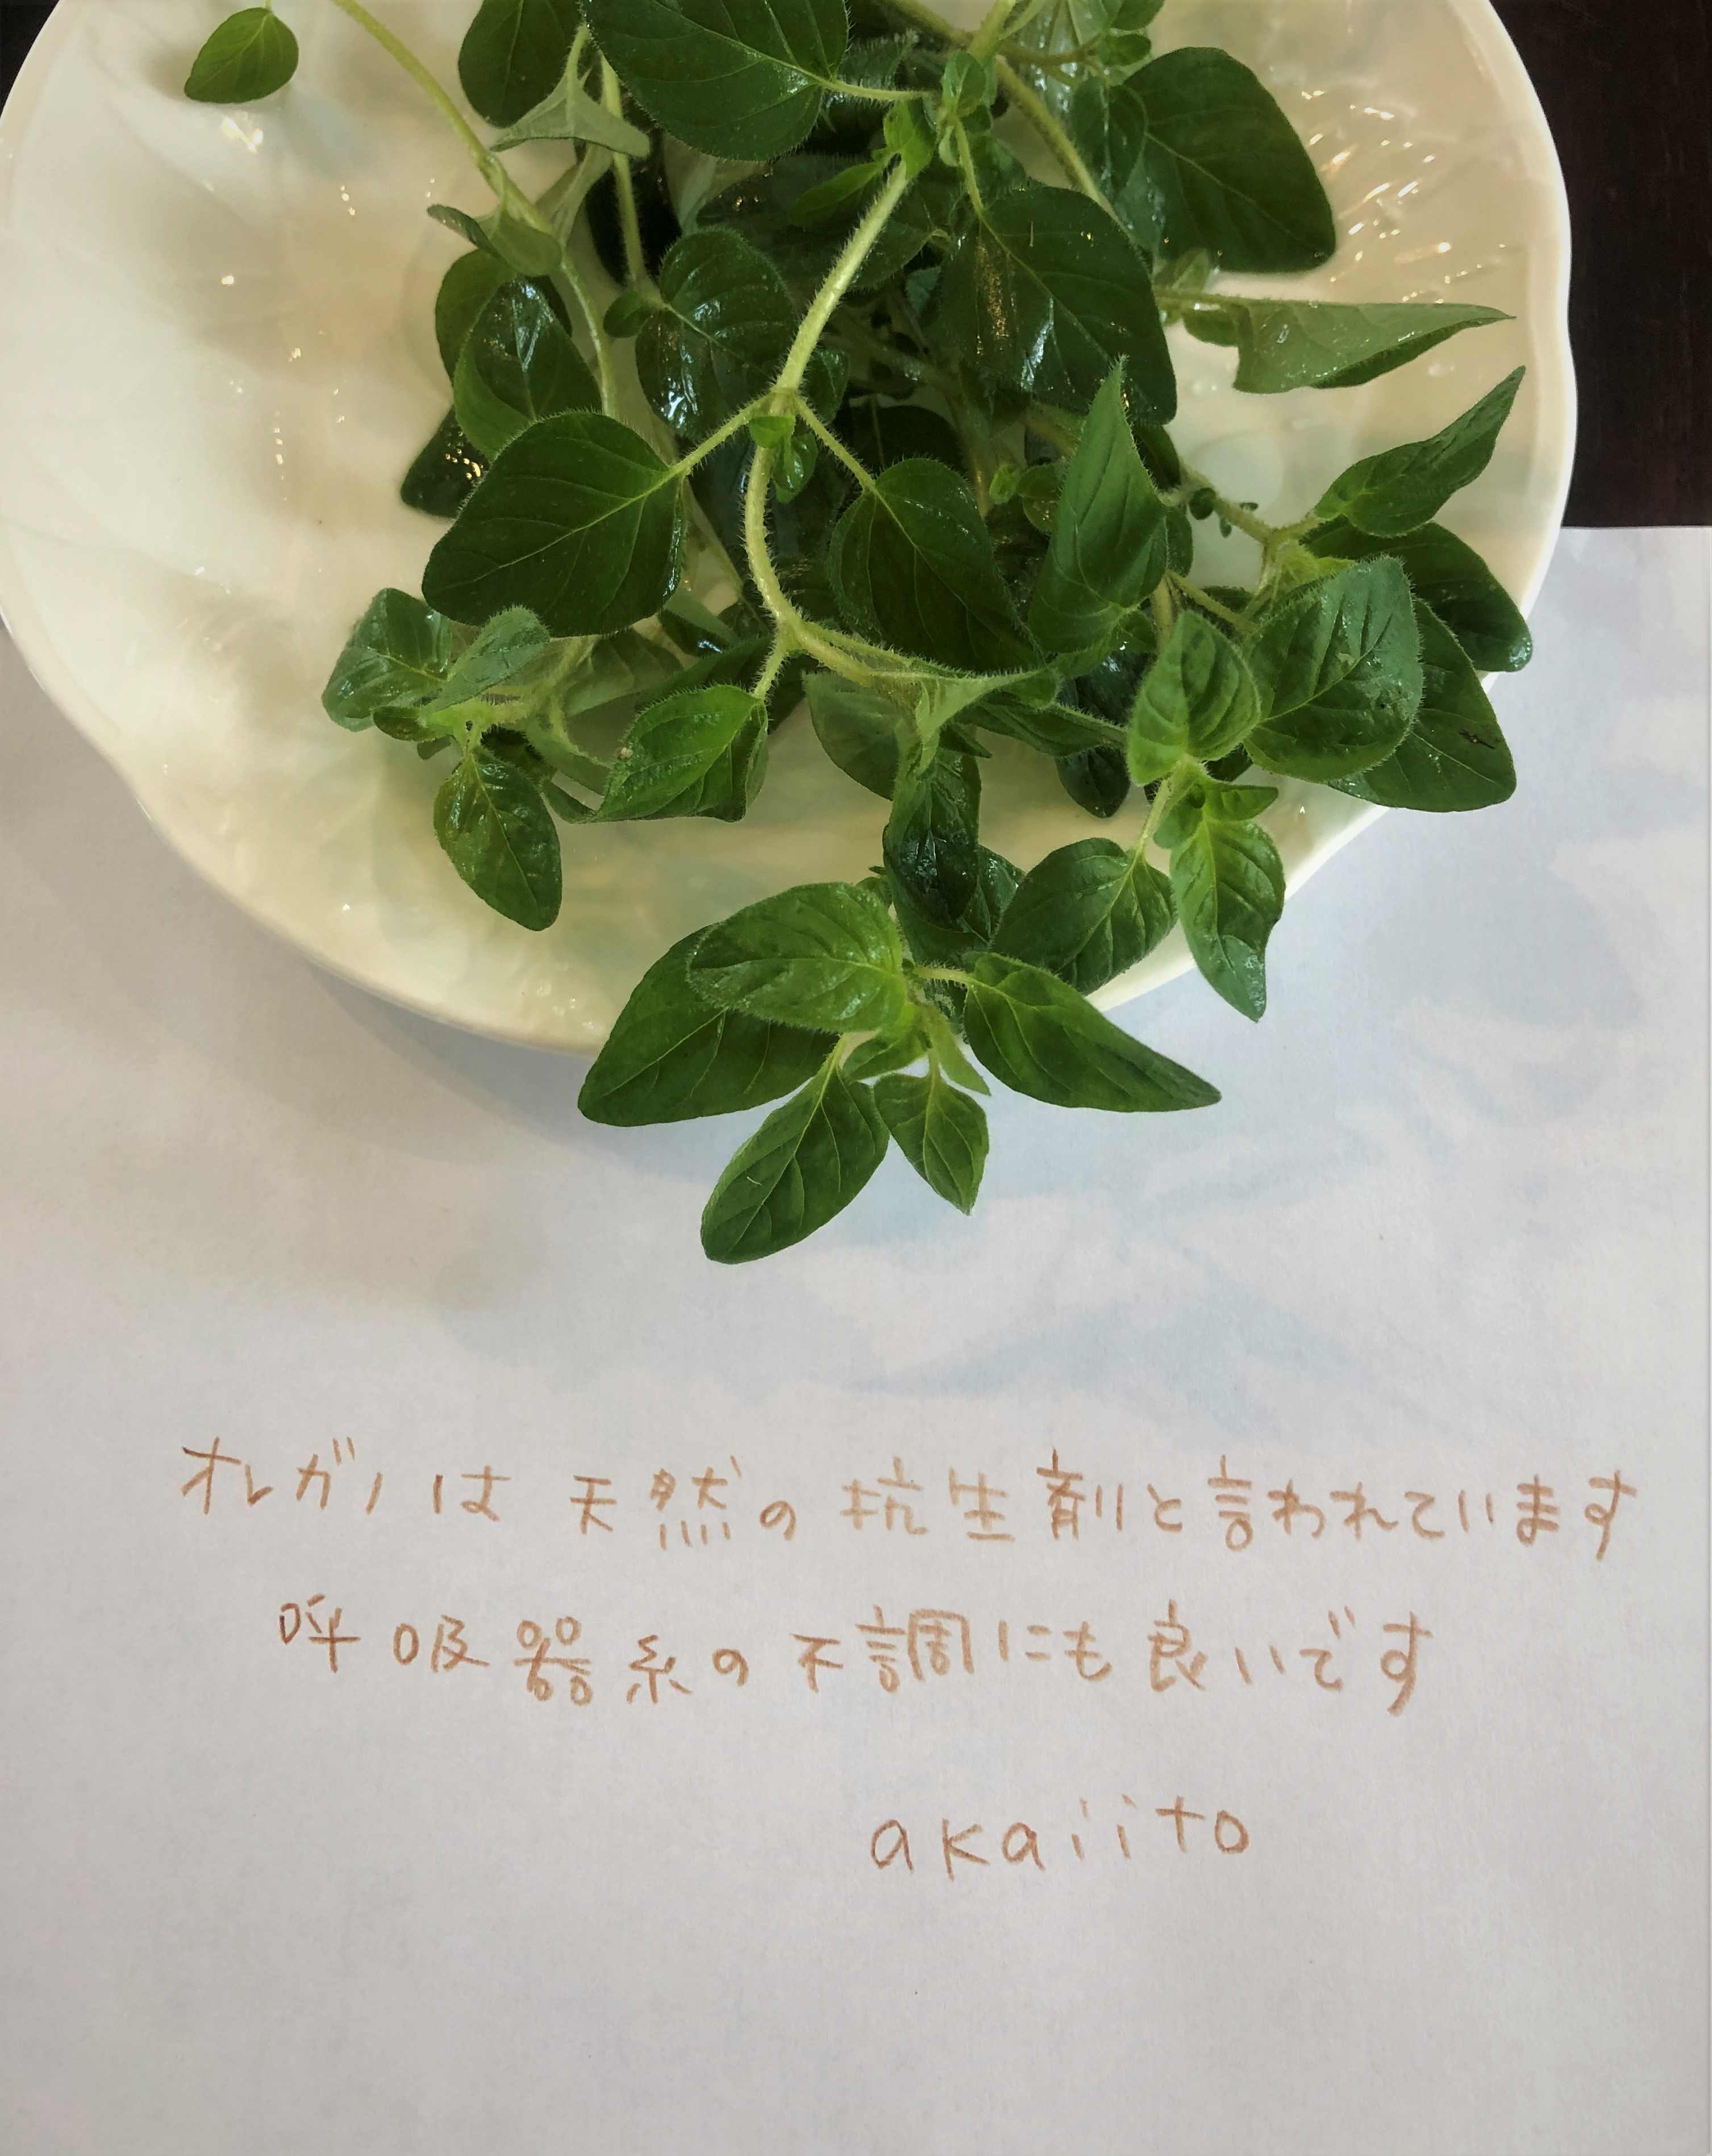 オレガノは天然の抗生剤と言われています
呼吸器系の不調にも良いです
akaiito